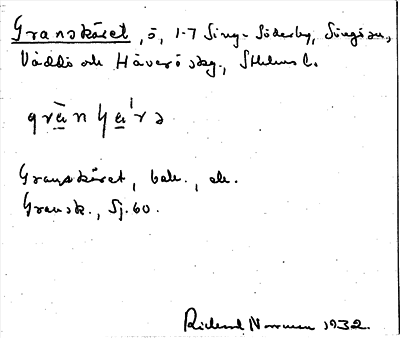 Granskäret, ö, 1-7 Sing-Söderby, Singö sn,
Väddö och Häverö skg., Sthlms l.
Granskäret, bok., ek.
Gransk., Sj. 60.
Rickard Norrman 1932.